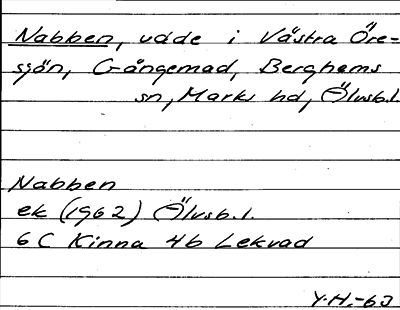 Nabben, udde i Västra Öre=
sjön, Gångemad, Berghems
sn, Marks hd, Älvsb.l.
Nabben
ek (1962) Älvsb.l.
6C Kinna 4b Lekvad
Y.H.-63